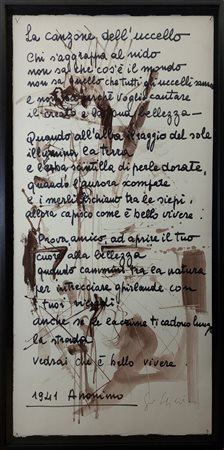 La canzone dell'uccello
Chi s'aggrappa al nido
non sa che cos'è il mondo
non sa quello che tutti gli uccelli sanno
e non sa perché voglio cantare
il creato e la sua bellezza -
Quando all'alba il raggio del sole
illumina la terra
e l'erba scintilla di perle dorate,
quando l'aurora compare
e i merli fischiano tra le siepi,
allora capisco come è bello vivere!
Prova amico, ad aprire il tuo
cuore alla bellezza
quando cammini tra la natura
per intrecciare ghirlande con
i tuoi ricordi:
anche se le lacrime ti cadono lungo
la strada
vedrai che è bello vivere.
1941 Anonimo